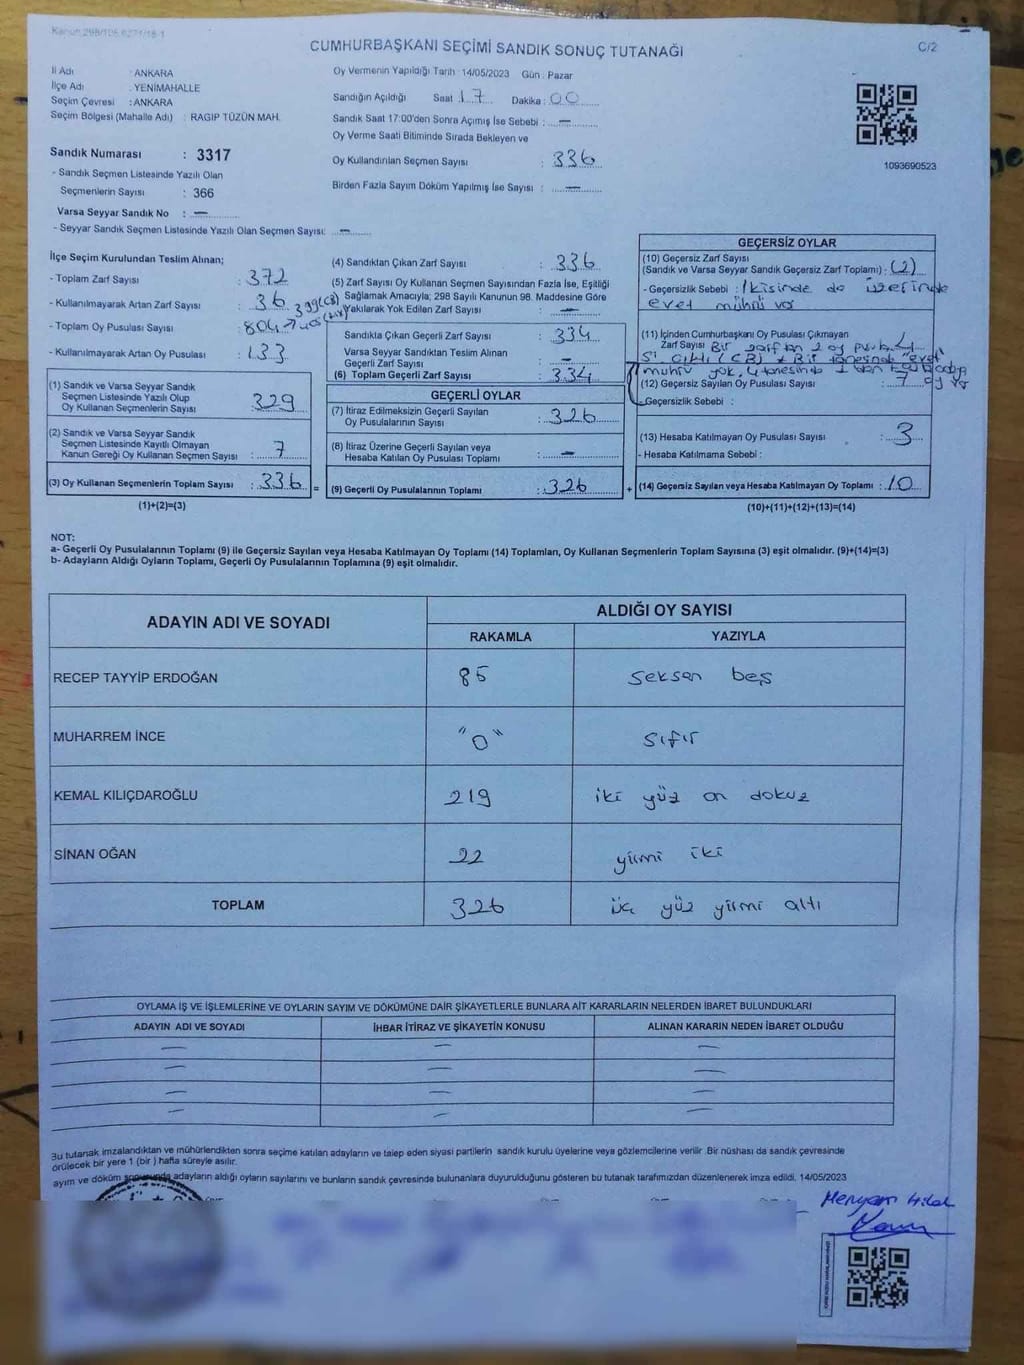 Kanun 298/105,6271/18-1
CUMHURBAŞKANI SEÇİMİ SANDIK SONUÇ TUTANAĞI
C/2
İl Adı : ANKARA
İlçe Adı : YENİMAHALLE
Seçim Çevresi : ANKARA
Seçim Bölgesi (Mahalle Adı) : RAGIP TÜZÜN MAH.
Sandık Numarası : 3317
- Sandık Seçmen Listesinde Yazılı Olan
Seçmenlerin Sayısı : 366
Varsa Seyyar Sandık No : —
- Seyyar Sandık Seçmen Listesinde Yazılı Olan Seçmen Sayısı: —
Oy Vermenin Yapıldığı Tarih : 14/05/2023 Gün : Pazar
Sandığın Açıldığı Saat : 17 Dakika : 00
Sandık Saat 17:00'den Sonra Açımış İse Sebebi : —
Oy Verme Saati Bitiminde Sırada Bekleyen ve
Oy Kullandırılan Seçmen Sayısı : 336
Birden Fazla Sayım Döküm Yapılmış İse Sayısı : —
1093690523
İlçe Seçim Kurulundan Teslim Alınan;
- Toplam Zarf Sayısı : 372
- Kullanılmayarak Artan Zarf Sayısı : 36
399(CB)
- Toplam Oy Pusulası Sayısı : 804→405
- Kullanılmayarak Artan Oy Pusulası : 133
(1) Sandık ve Varsa Seyyar Sandık
Seçmen Listesinde Yazılı Olup
Oy Kullanan Seçmenlerin Sayısı : 329
(2) Sandık ve Varsa Seyyar Sandık
Seçmen Listesinde Kayıtlı Olmayan
Kanun Gereği Oy Kullanan Seçmen Sayısı : 7
(3) Oy Kullanan Seçmenlerin Toplam Sayısı : 336 =
(1)+(2)=(3)
(4) Sandıktan Çıkan Zarf Sayısı : 336
(5) Zarf Sayısı Oy Kullanan Seçmen Sayısından Fazla İse, Eşitliği
Sağlamak Amacıyla; 298 Sayılı Kanunun 98. Maddesine Göre
Yakılarak Yok Edilen Zarf Sayısı : —
Sandıkta Çıkan Geçerli Zarf Sayısı : 334
Varsa Seyyar Sandıktan Teslim Alınan
Geçerli Zarf Sayısı : —
(6) Toplam Geçerli Zarf Sayısı : 334
GEÇERLİ OYLAR
(7) İtiraz Edilmeksizin Geçerli Sayılan
Oy Pusulalarının Sayısı : 326
(8) İtiraz Üzerine Geçerli Sayılan veya
Hesaba Katılan Oy Pusulası Toplamı : —
(9) Geçerli Oy Pusulalarının Toplamı : 326 +
GEÇERSİZ OYLAR
(10) Geçersiz Zarf Sayısı
(Sandık ve Varsa Seyyar Sandık Geçersiz Zarf Toplamı) : (2)
- Geçersizlik Sebebi : İkisinde de üzerinde
evet mührü var
(11) İçinden Cumhurbaşkanı Oy Pusulası Çıkmayan
Zarf Sayısı Bir zarftan 2 oy
çıktı (CB) Bir tanesinde "evet"
mührü yok, 4 tanesinde
(12) Geçersiz Sayılan Oy Pusulası Sayısı : 7 oy var
-Geçersizlik Sebebi :
(13) Hesaba Katılmayan Oy Pusulası Sayısı : 3
- Hesaba Katılmama Sebebi :
(14) Geçersiz Sayılan veya Hesaba Katılmayan Oy Toplamı : 10
(10)+(11)+(12)+(13)=(14)
NOT:
a- Geçerli Oy Pusulalarının Toplamı (9) ile Geçersiz Sayılan veya Hesaba Katılmayan Oy Toplamı (14) Toplamları, Oy Kullanan Seçmenlerin Toplam Sayısına (3) eşit olmalıdır. (9)+(14)=(3)
b- Adayların Aldığı Oyların Toplamı, Geçerli Oy Pusulalarının Toplamına (9) eşit olmalıdır.
ADAYIN ADI VE SOYADI
ALDIĞI OY SAYISI
RAKAMLA YAZIYLA
RECEP TAYYİP ERDOĞAN 85 seksen beş
MUHARREM İNCE "0" sıfır
KEMAL KILIÇDAROĞLU 219 iki yüz on dokuz
SİNAN OĞAN 22 yirmi iki
TOPLAM 326 üç yüz yirmi altı
OYLAMA İŞ VE İŞLEMLERİNE VE OYLARIN SAYIM VE DÖKÜMÜNE DAİR ŞİKAYETLERLE BUNLARA AİT KARARLARIN NELERDEN İBARET BULUNDUKLARI
ADAYIN ADI VE SOYADI İHBAR İTİRAZ VE ŞİKAYETİN KONUSU ALINAN KARARIN NEDEN İBARET OLDUĞU
— — —
— — —
— — —
— — —
Bu tutanak imzalandıktan ve mühürlendikten sonra seçime katılan adayların ve talep eden siyasi partilerin sandık kurulu üyelerine veya gözlemcilerine verilir. Bir nüshası da sandık çevresinde
örülecek bir yere 1 (bir) hafta süreyle asılır.
ayım ve döküm sonucunda adayların aldığı oyların sayılarını ve bunların sandık çevresinde bulunanlara duyurulduğunu gösteren bu tutanak tarafımızdan düzenlenerek imza edildi. 14/05/2023